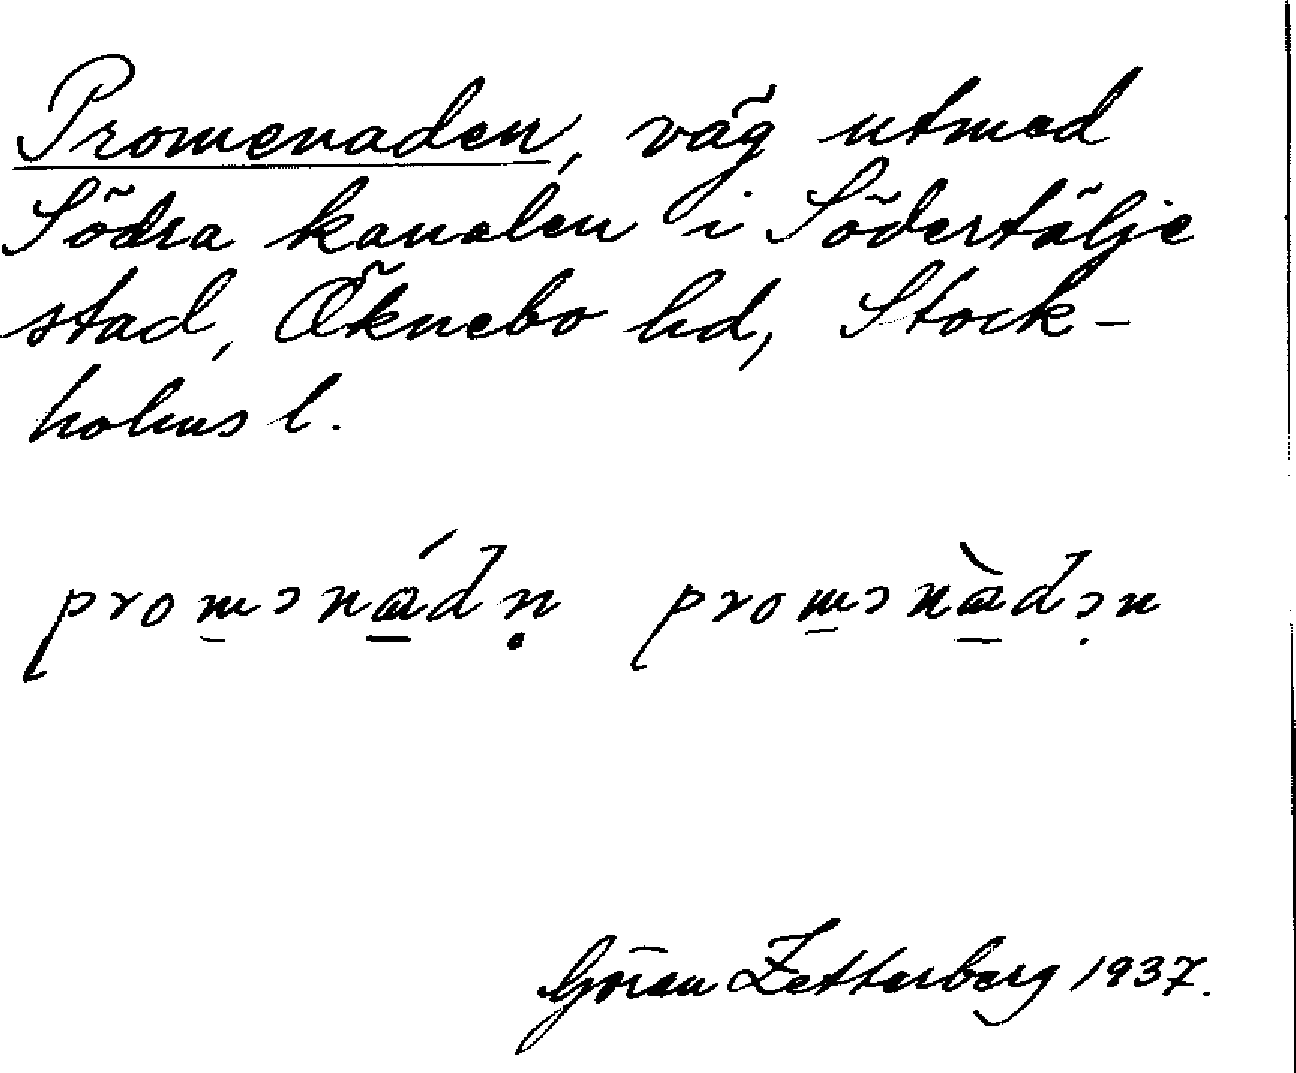 Promenaden, väg utmed
Södra kanalen i Södertälje
stad, Öknebo hd, Stock-
holms l.
promənɑ́dn̥ promənɑ̀dən
Göran Zetterberg 1937.